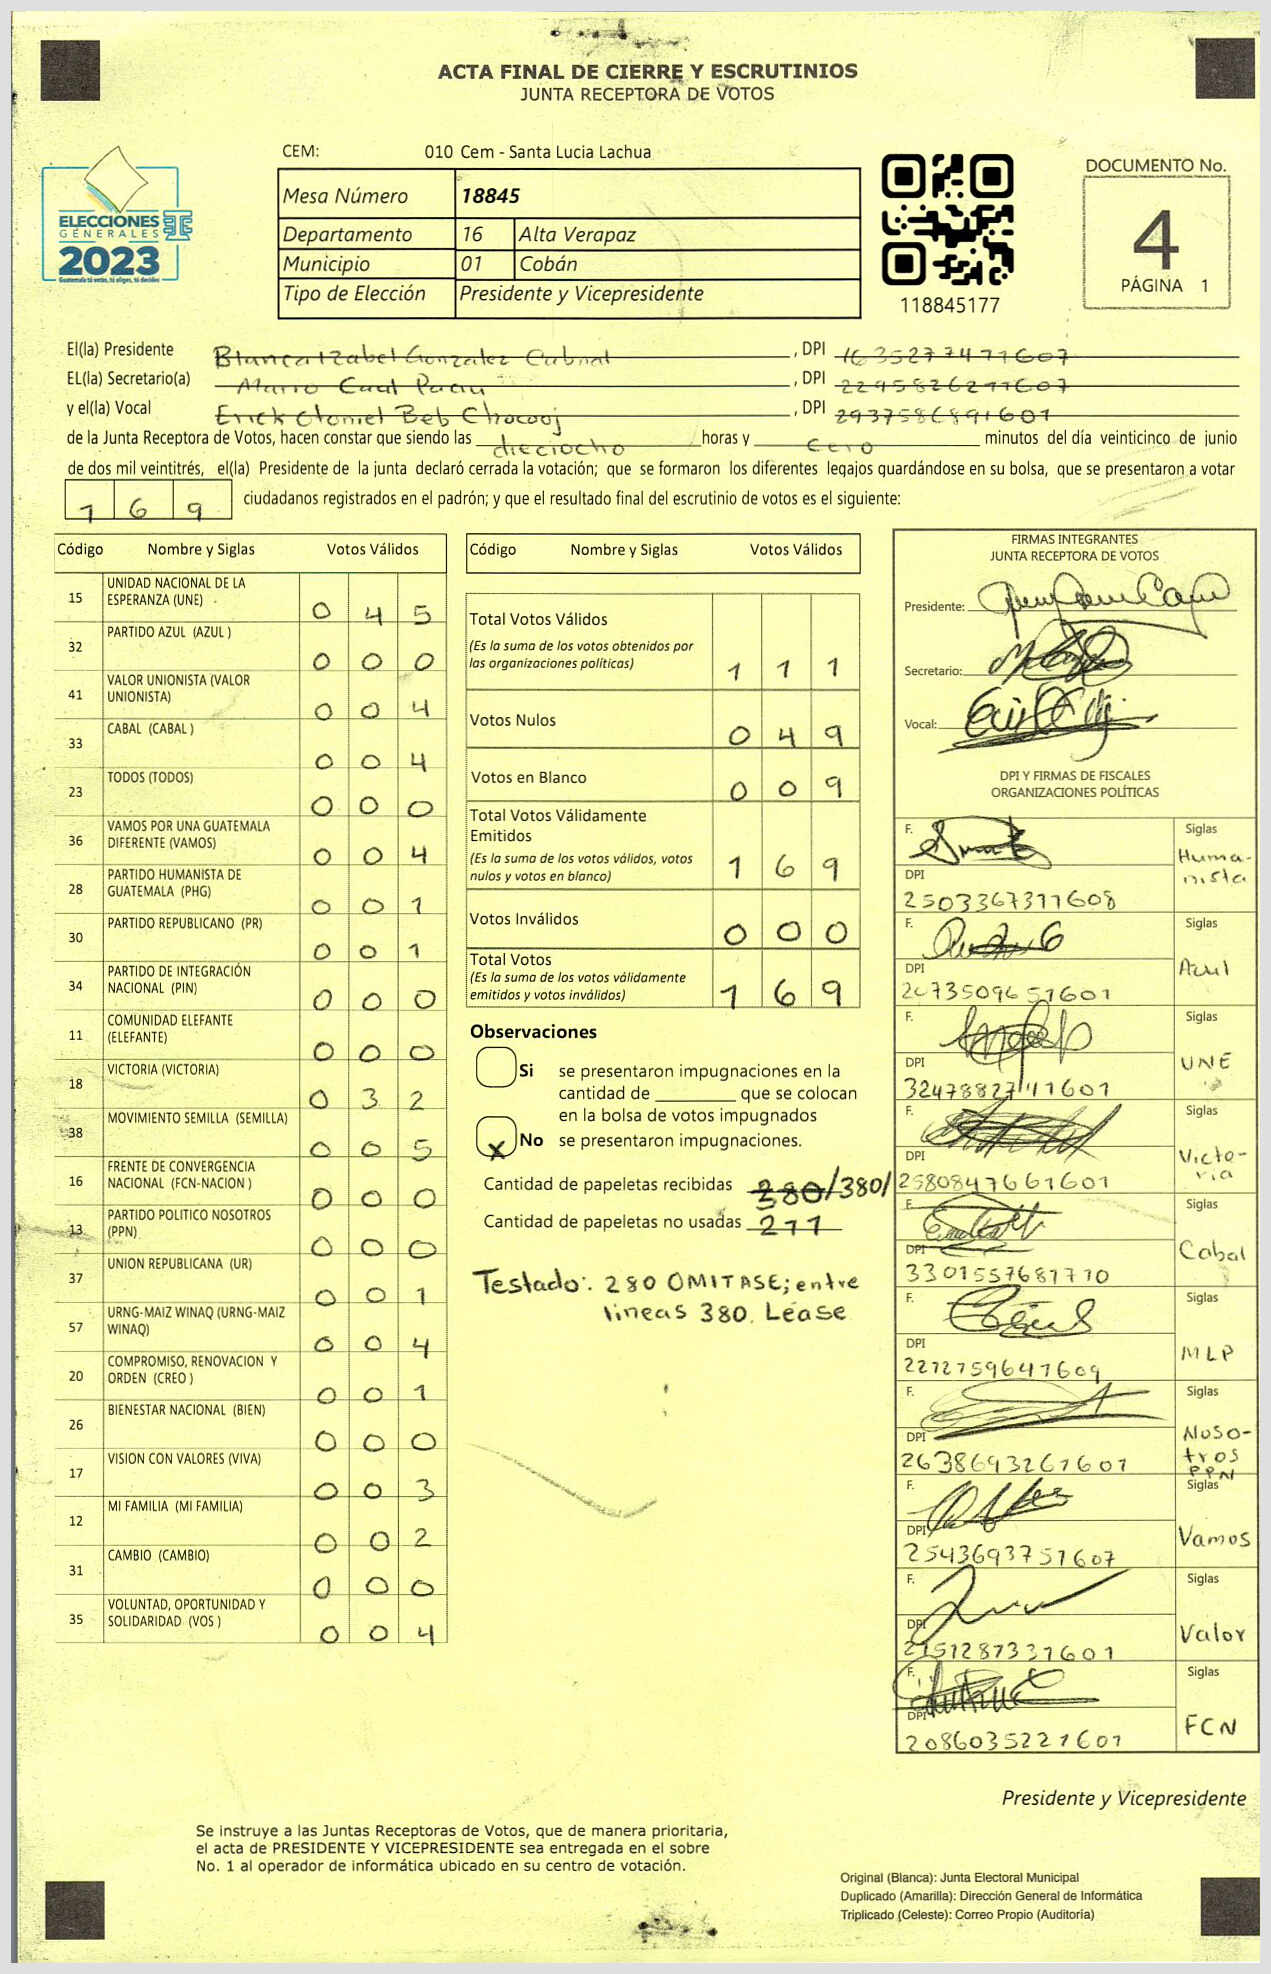 ACTA FINAL DE CIERRE Y ESCRUTINIOS
JUNTA RECEPTORA DE VOTOS
CEM: 010 Cem - Santa Lucia Lachua
Mesa Número 18845
Departamento 16 Alta Verapaz
Municipio 01 Cobán
Tipo de Elección Presidente y Vicepresidente
ELECCIONES
GENERALES
2023
118845177
DOCUMENTO No.
4
PÁGINA 1
El(la) Presidente Blanca Izabel Gonzalez Cabnal, DPI 1635277471607
EL(la) Secretario(a) Mario Caal, DPI 2295826271607
y el(la) Vocal Erick Otoniel Beb Chocooj, DPI 2937586891601
de la Junta Receptora de Votos, hacen constar que siendo las dieciocho horas y cero minutos del día veinticinco de junio
de dos mil veintitrés, el(la) Presidente de la junta declaró cerrada la votación; que se formaron los diferentes legajos guardándose en su bolsa, que se presentaron a votar
169 ciudadanos registrados en el padrón; y que el resultado final del escrutinio de votos es el siguiente:
Código Nombre y Siglas Votos Válidos
15 UNIDAD NACIONAL DE LA ESPERANZA (UNE) 045
32 PARTIDO AZUL (AZUL ) 000
41 VALOR UNIONISTA (VALOR UNIONISTA) 004
33 CABAL (CABAL ) 004
23 TODOS (TODOS) 000
36 VAMOS POR UNA GUATEMALA DIFERENTE (VAMOS) 004
28 PARTIDO HUMANISTA DE GUATEMALA (PHG) 001
30 PARTIDO REPUBLICANO (PR) 001
34 PARTIDO DE INTEGRACIÓN NACIONAL (PIN) 000
11 COMUNIDAD ELEFANTE (ELEFANTE) 000
18 VICTORIA (VICTORIA) 032
38 MOVIMIENTO SEMILLA (SEMILLA) 005
16 FRENTE DE CONVERGENCIA NACIONAL (FCN-NACION ) 000
13 PARTIDO POLITICO NOSOTROS (PPN) 000
37 UNION REPUBLICANA (UR) 001
57 URNG-MAIZ WINAQ (URNG-MAIZ WINAQ) 004
20 COMPROMISO, RENOVACION Y ORDEN (CREO ) 001
26 BIENESTAR NACIONAL (BIEN) 000
17 VISION CON VALORES (VIVA) 003
12 MI FAMILIA (MI FAMILIA) 002
31 CAMBIO (CAMBIO) 000
35 VOLUNTAD, OPORTUNIDAD Y SOLIDARIDAD (VOS ) 004
Código Nombre y Siglas Votos Válidos
Total Votos Válidos
(Es la suma de los votos obtenidos por
las organizaciones políticas) 111
Votos Nulos 049
Votos en Blanco 009
Total Votos Válidamente
Emitidos
(Es la suma de los votos válidos, votos
nulos y votos en blanco) 169
Votos Inválidos 000
Total Votos
(Es la suma de los votos válidamente
emitidos y votos inválidos) 169
Observaciones
Si se presentaron impugnaciones en la
cantidad de ________ que se colocan
en la bolsa de votos impugnados
X No se presentaron impugnaciones.
Cantidad de papeletas recibidas 280/380/
Cantidad de papeletas no usadas 211
Testado: 280 OMITASE; entre
lineas 380. Léase
FIRMAS INTEGRANTES
JUNTA RECEPTORA DE VOTOS
Presidente:
Secretario:
Vocal:
DPI Y FIRMAS DE FISCALES
ORGANIZACIONES POLÍTICAS
F. Siglas
Huma-
nista
DPI
2503367311608
F. Siglas
Azul
DPI
2673509651601
F. Siglas
UNE
DPI
3247882741601
F. Siglas
Victo-
ria
DPI
2580847661601
F. Siglas
Cabal
DPI
3301557681710
F. Siglas
MLP
DPI
2272759647609
F. Siglas
Noso-
tros
PPN
DPI
2638693261601
F. Siglas
Vamos
DPI
2543693751607
F. Siglas
Valor
DPI
2151287331601
F. Siglas
FCN
DPI
2086035221601
Presidente y Vicepresidente
Se instruye a las Juntas Receptoras de Votos, que de manera prioritaria,
el acta de PRESIDENTE Y VICEPRESIDENTE sea entregada en el sobre
No. 1 al operador de informática ubicado en su centro de votación.
Original (Blanca): Junta Electoral Municipal
Duplicado (Amarilla): Dirección General de Informática
Triplicado (Celeste): Correo Propio (Auditoría)